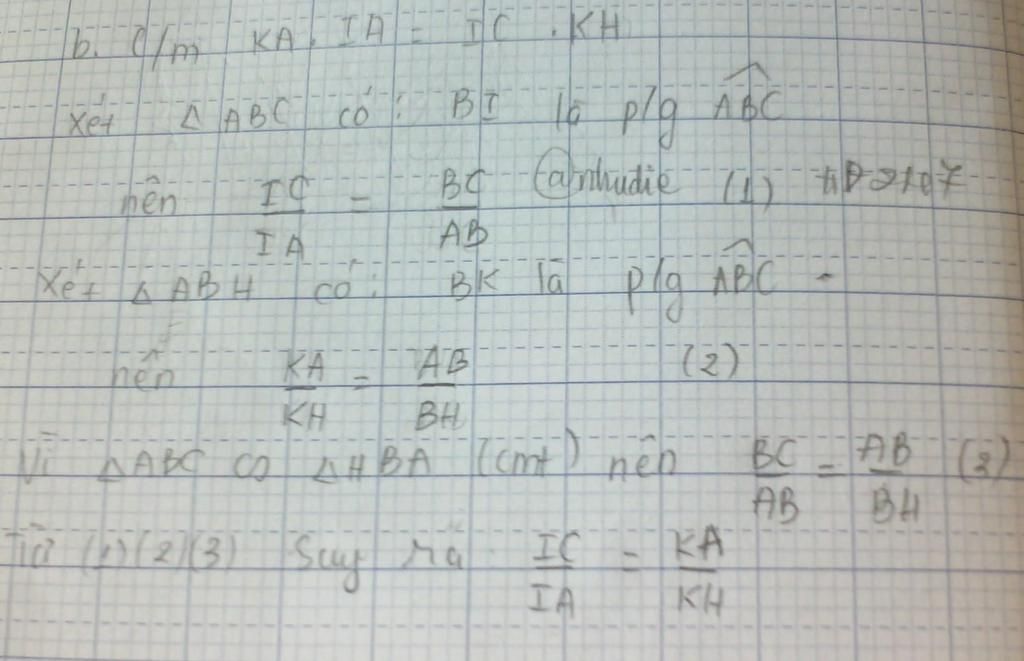 b. C/m KA. IA = IC . KH
Xét Δ ABC có: BI là p/g \widehat{ABC}
nên \frac{IC}{IA} = \frac{BC}{AB} @nhudie (1)
Xét Δ ABH có: BK là p/g \widehat{ABC}
nên \frac{KA}{KH} = \frac{AB}{BH} (2)
Vì ΔABC ∽ ΔHBA (cmt) nên \frac{BC}{AB} = \frac{AB}{BH} (3)
Từ (1)(2)(3) Suy ra \frac{IC}{IA} = \frac{KA}{KH}